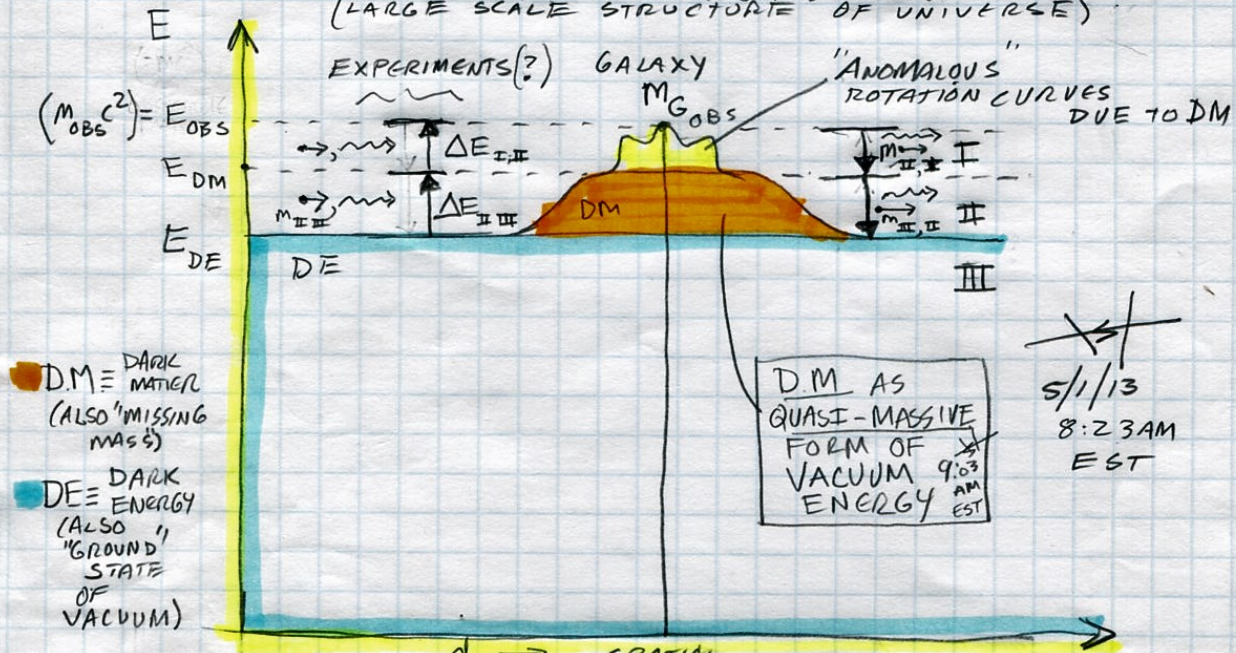 (LARGE SCALE STRUCTURE OF UNIVERSE)
E
EXPERIMENTS(?) GALAXY "ANOMALOUS"
ROTATION CURVES
DUE TO DM
M G OBS
(M OBS C²) = E OBS
ΔE I,II
m II,I I
E DM
m II III
ΔE II III
DM
m III,II II
E DE
DE
III
D.M ≡ DARK
MATTER
(ALSO "MISSING
MASS")
DE ≡ DARK
ENERGY
(ALSO
"GROUND"
STATE
OF
VACUUM)
D.M AS
QUASI-MASSIVE
FORM OF
VACUUM
ENERGY
9:03
AM
EST
5/1/13
8:23AM
EST
SPATIAL